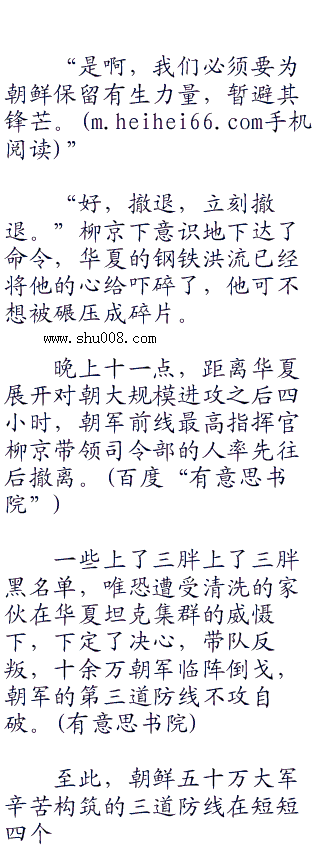 “是啊，我们必须要为
朝鲜保留有生力量，暂避其
锋芒。(m.heihei66.com手机
阅读)”
“好，撤退，立刻撤
退。”柳京下意识地下达了
命令，华夏的钢铁洪流已经
将他的心给吓碎了，他可不
想被碾压成碎片。
www.shu008.com
晚上十一点，距离华夏
展开对朝大规模进攻之后四
小时，朝军前线最高指挥官
柳京带领司令部的人率先往
后撤离。(百度“有意思书
院”)
一些上了三胖上了三胖
黑名单，唯恐遭受清洗的家
伙在华夏坦克集群的威慑
下，下定了决心，带队反
叛，十余万朝军临阵倒戈，
朝军的第三道防线不攻自
破。(有意思书院)
至此，朝鲜五十万大军
辛苦构筑的三道防线在短短
四个